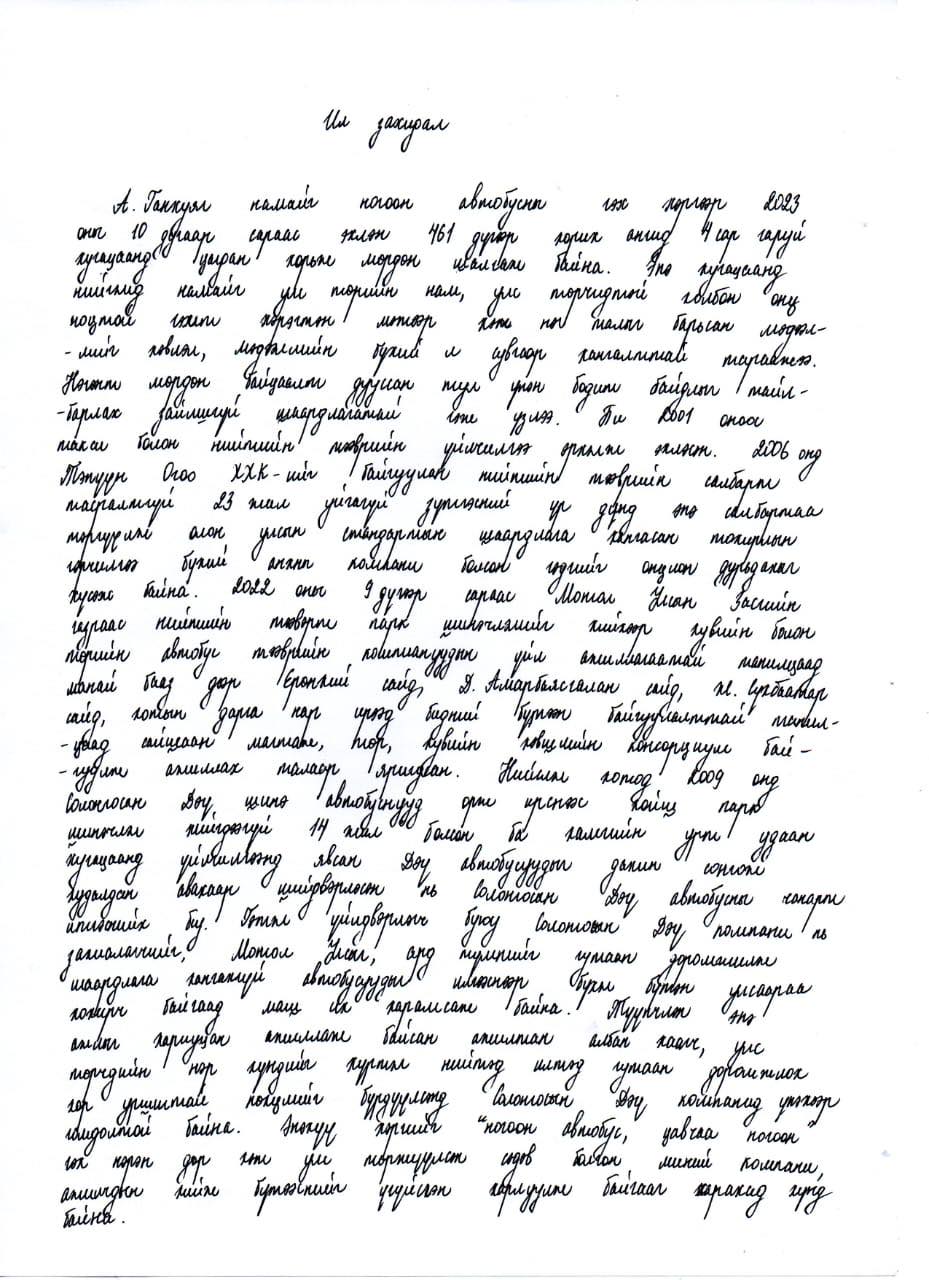 Ил захидал
А. Ганхуяг намайг ногоон автобусны гэх хэргээр 2023
оны 10 дугаар сараас эхлэн 461 дүгээр хорих ангид 4 сар гаруй
хугацаанд цагдан хорьж мөрдөн шалгаж байна. Энэ хугацаанд
нийгмэд намайг улс төрийн нам, улс төрчидтэй холбон онц
ноцтой гэмт хэрэгтэн мэтээр хэт нэг талыг барьсан мэдээл-
-лийг хэвлэл, мэдээллийн бүхий л сувгаар хангалттай тараажээ.
Нэгэнт мөрдөн байцаалт дууссан тул үнэн бодит байдлыг тайл-
-барлах зайлшгүй шаардлагатай гэж үзлээ. Би 2001 оноос
такси болон нийтийн тээврийн үйлчилгээ эрхэлж эхэлсэн. 2006 онд
Тэнүүн Огоо ХХК-ийг байгуулан нийтийн тээврийн салбарт
тасралтгүй 23 жил үйгагүй зүтгэсний үр дүнд энэ салбартаа
тэргүүлж олон улсын стандартын шаардлага хангасан тохирлын
гэрчилгээ бүхий анхны компани болсон гэдгийг онцлон дурдахыг
хүсэж байна. 2022 оны 9 дүгээр сараас Монгол Улсын Засгийн
газраас нийтийн тээврийн парк шинэчлэлийг хийхээр хувийн болон
төрийн автобус тээврийн компаниудын үйл ажиллагаатай танилцаад
манай бааз дээр Ерөнхий сайд, Д. Амарбаясгалан сайд, Ж. Сүхбаатар
сайд, хотын дарга нар ирээд бидний бүтээн байгуулалттай танил-
-цаад сайшаан магтаж, төр, хувийн хэвшлийн консорциум бай-
-гуулж ажиллах талаар ярилцсан. Нийслэл хотод 2009 онд
Солонгосын Дэү шинэ автобуснууд орж ирснээс хойш парк
шинэчлэл хийгдээгүй 14 жил болсон ба хамгийн урт удаан
хугацаанд үйлчилгээнд явсан Дэү автобуснуудыг дахин сонгож
худалдан авахаар шийдвэрлэсэн нь Солонгосын Дэү автобусны чанарт
итгэсэнийх биз. Гэтэл үйлдвэрлэгч буюу Солонгосын Дэү компани нь
захиалагчийг, Монгол Улсыг, ард түмнийг гутаан доромжилж
шаардлага хангахгүй автобуснуудыг нийлүүлснээр бүхэл бүтэн улсаараа
хохирч байгаад маш их харамсаж байна. Түүнчлэн энэ
ажлыг хариуцан ажиллаж байсан ажилтан албан хаагч, улс
төрчдийн нэр хүндийг хүртэл нийтэд илтэд гутаан доромжлох
хор уршигтай нөхцлийг бүрдүүлсэнд Солонгосын Дэү компанид үнэхээр
гомдолтой байна. Энэхүү хэргийг "ногоон автобус, цавчаа ногоон"
гэх нэрэн дор хэт улс төржүүлсэн сэдэв болгон миний компани,
ажилчдын хийж бүтээснийг үгүйсгэн харлуулж байгааг харахад хүнд
байна.